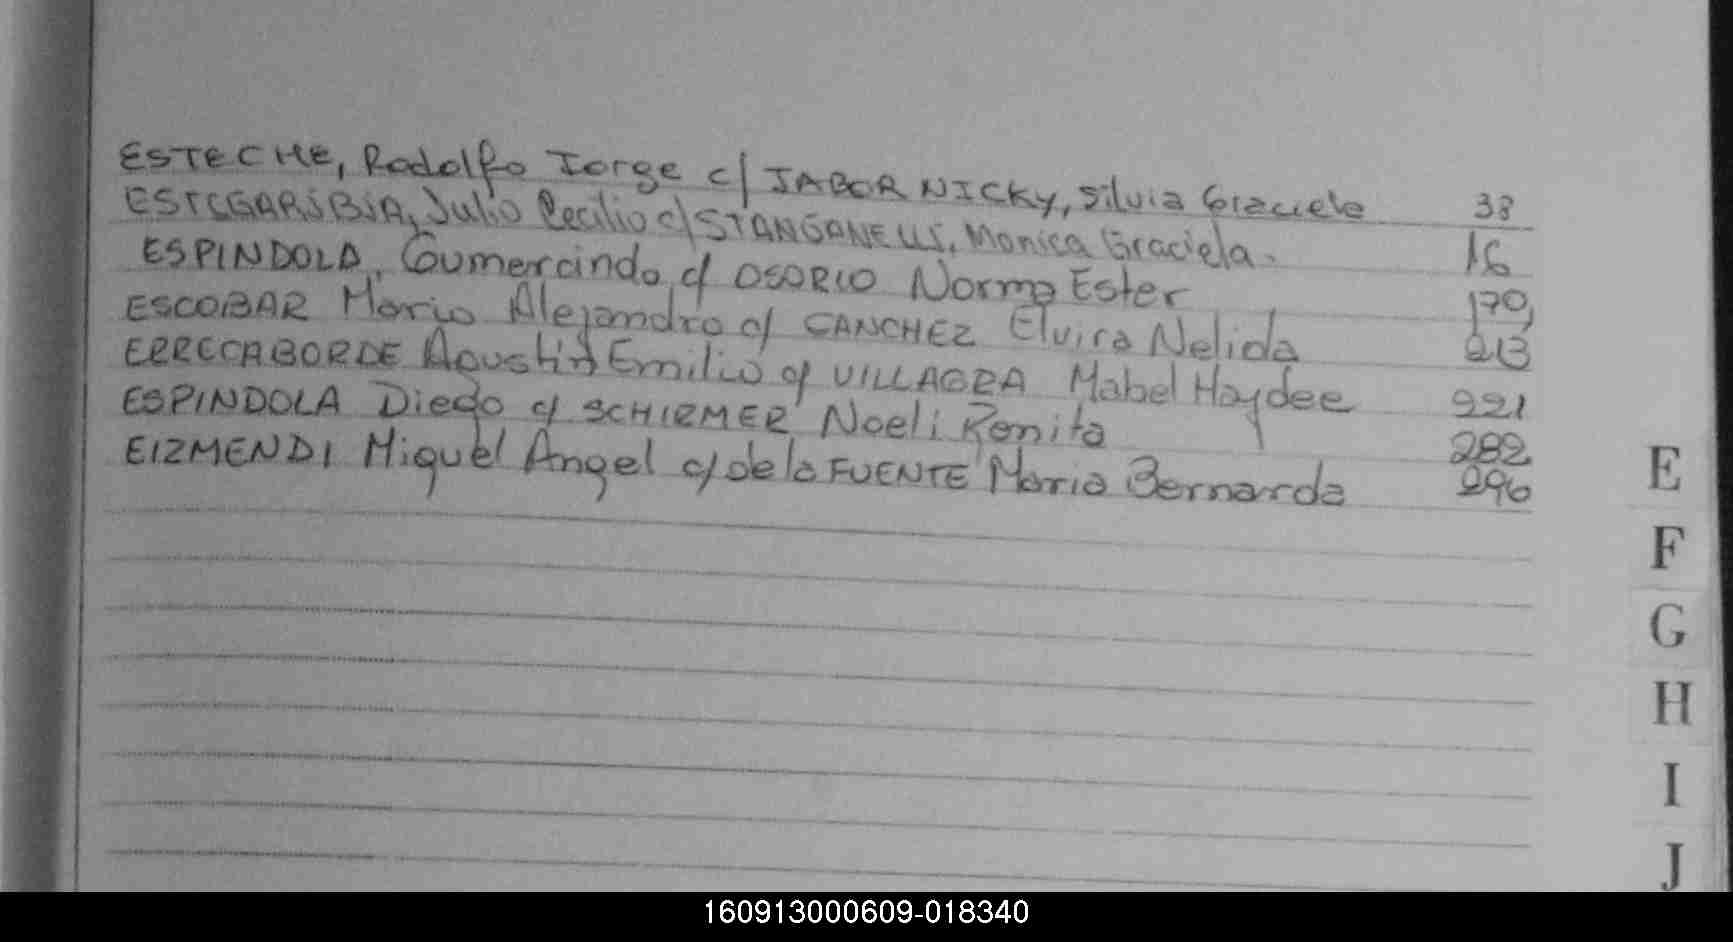 ESTECHE, Rodolfo Jorge c/ JABOR NICKY, Silvia Graciela 38
ESTEGARIBIA, Julio Cecilio c/ STANGANELLI, Monica Graciela. 16
ESPINDOLA, Gumercindo, c/ OSORIO Norma Ester 170
ESCOBAR Mario Alejandro c/ SANCHEZ Elvira Nelida 213
ERRECABORDE Agustin Emilio c/ VILLAGRA Mabel Haydee 221
ESPINDOLA Diego c/ SCHIRMER Noeli Romita 282
EIZMENDI Miguel Angel c/ de la FUENTE Maria Bernarda 296
E
F
G
H
I
J
160913000609-018340